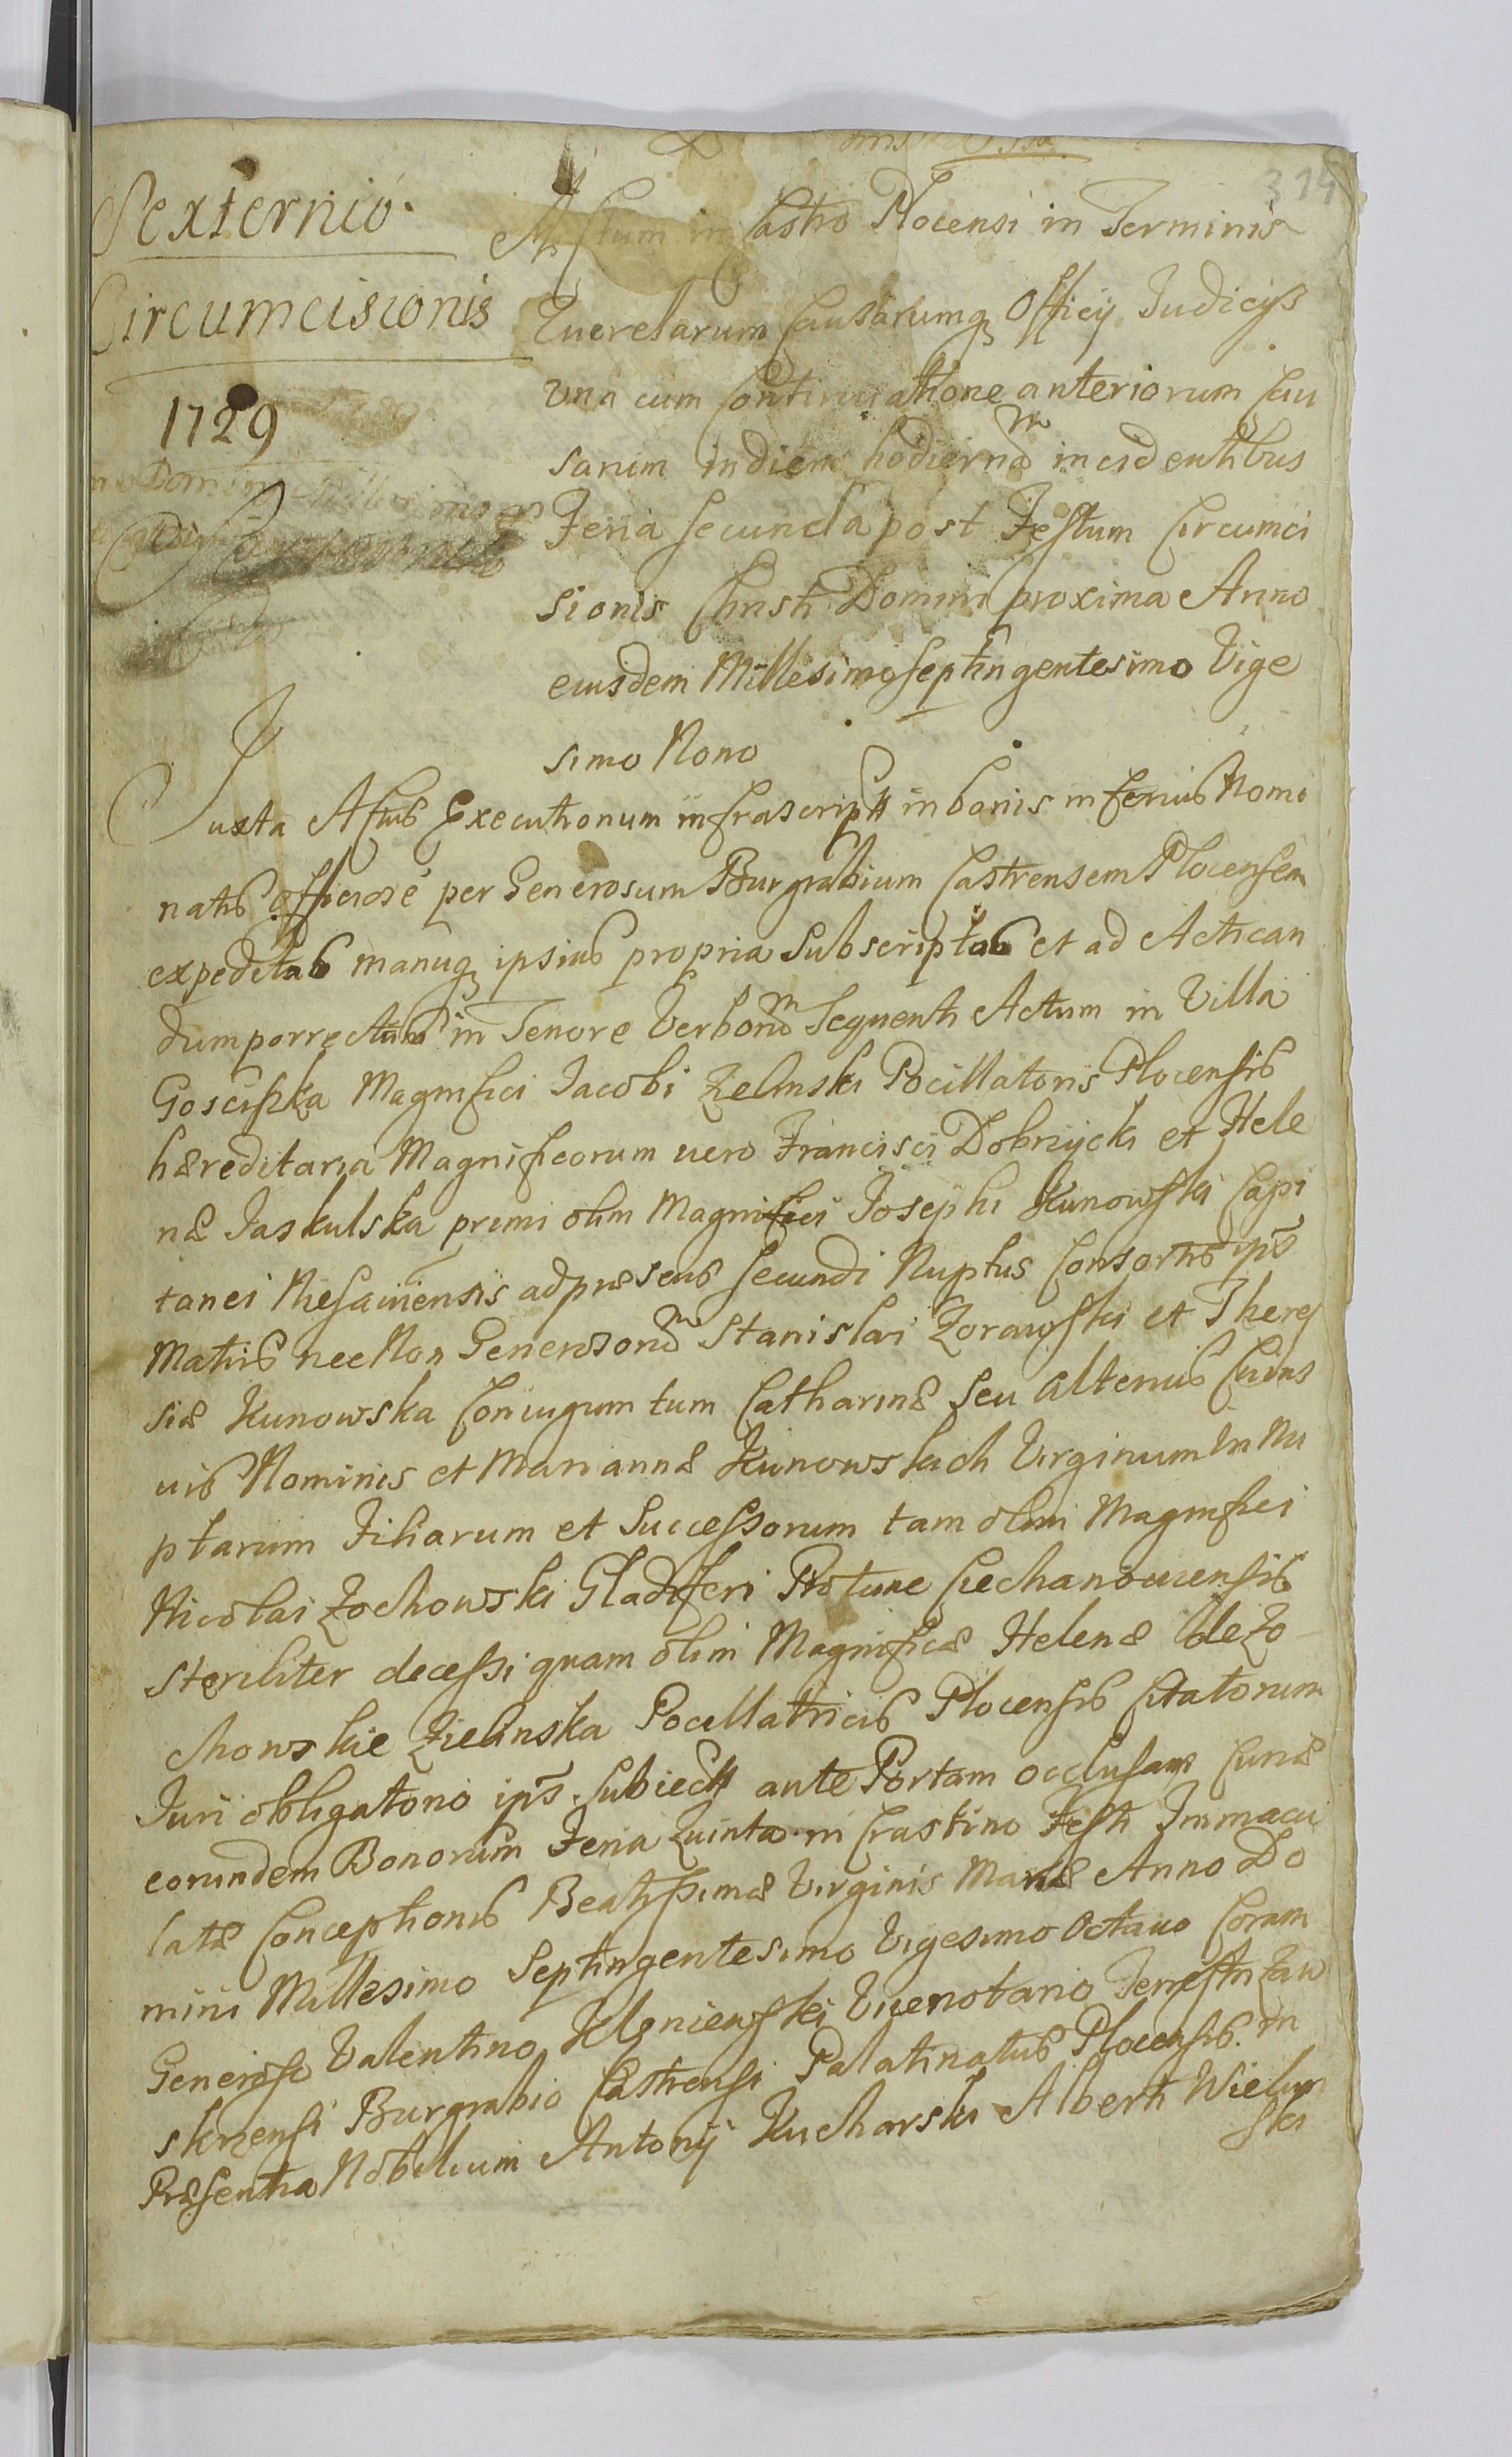 314
Sexternio
Circumcisionis
1729
Actum in Castro Plocensi in Terminis
Querelarum Causarumq Officij Judicijs
una cum Continuatione anteriorum Cau
sarum in diem hodiernam incidentibus
Feria Secunda post Festum Circumci
sionis Christi Domini proxima Anno
eiusdem Millesimo Septingentesimo Vige
simo Nono
Juxta Actus Executionum infrascript in bonis inferius Nomi
natis officiose per Generosum Burgrabium Castrensem Plocensem
expeditas manuq ipsius propria Subscriptas et ad Actican
dum porrectas in Tenore Verborum Sequenti Actum in Villa
Goscişka Magnifici Jacobi Zielinski Pocillatoris Plocensis
hæreditaria Magnificorum vero Francisci Dobrzycki et Hele
næ Jaskulska primi olim Magnifici Josephi Kunowski Capi
tanei adpræsens Secundi Nuptus Consortis ips
Matris necNon Generosorum Stanislai Zorawski et There
siæ Kunowska Coniugum tum Catharinæ Seu alterius Cuius
uis Nominis et Mariannæ Kunowskich Virginum In Nu
ptarum Filiarum et Successorum tam olim Magnifici
Nicolai Zochowski Gladiferi Protunc Ciechanouiensis
Steriliter decessi quam olim Magnificæ Helenæ de Zo
chowskie Zielinska Pocillatricis Plocensis Citatorum
Juri obligatorio ips. Subiect ante Portam occlusam Curiæ
eorundem Bonorum Feria Quinta in Crastino Festi Immacu
latæ Conceptionis Beatissimæ Virginis Mariæ Anno Do
mini Millesimo Septingentesimo Vigesimo Octauo Coram
Generoso Valentino Vicenotario Terrestri Zaw
skrzensi Burgrabio Castrensi Palatinatus Plocensis. in
Præsentia Nobilium Antonij Kucharski Alberti Wielun
ski